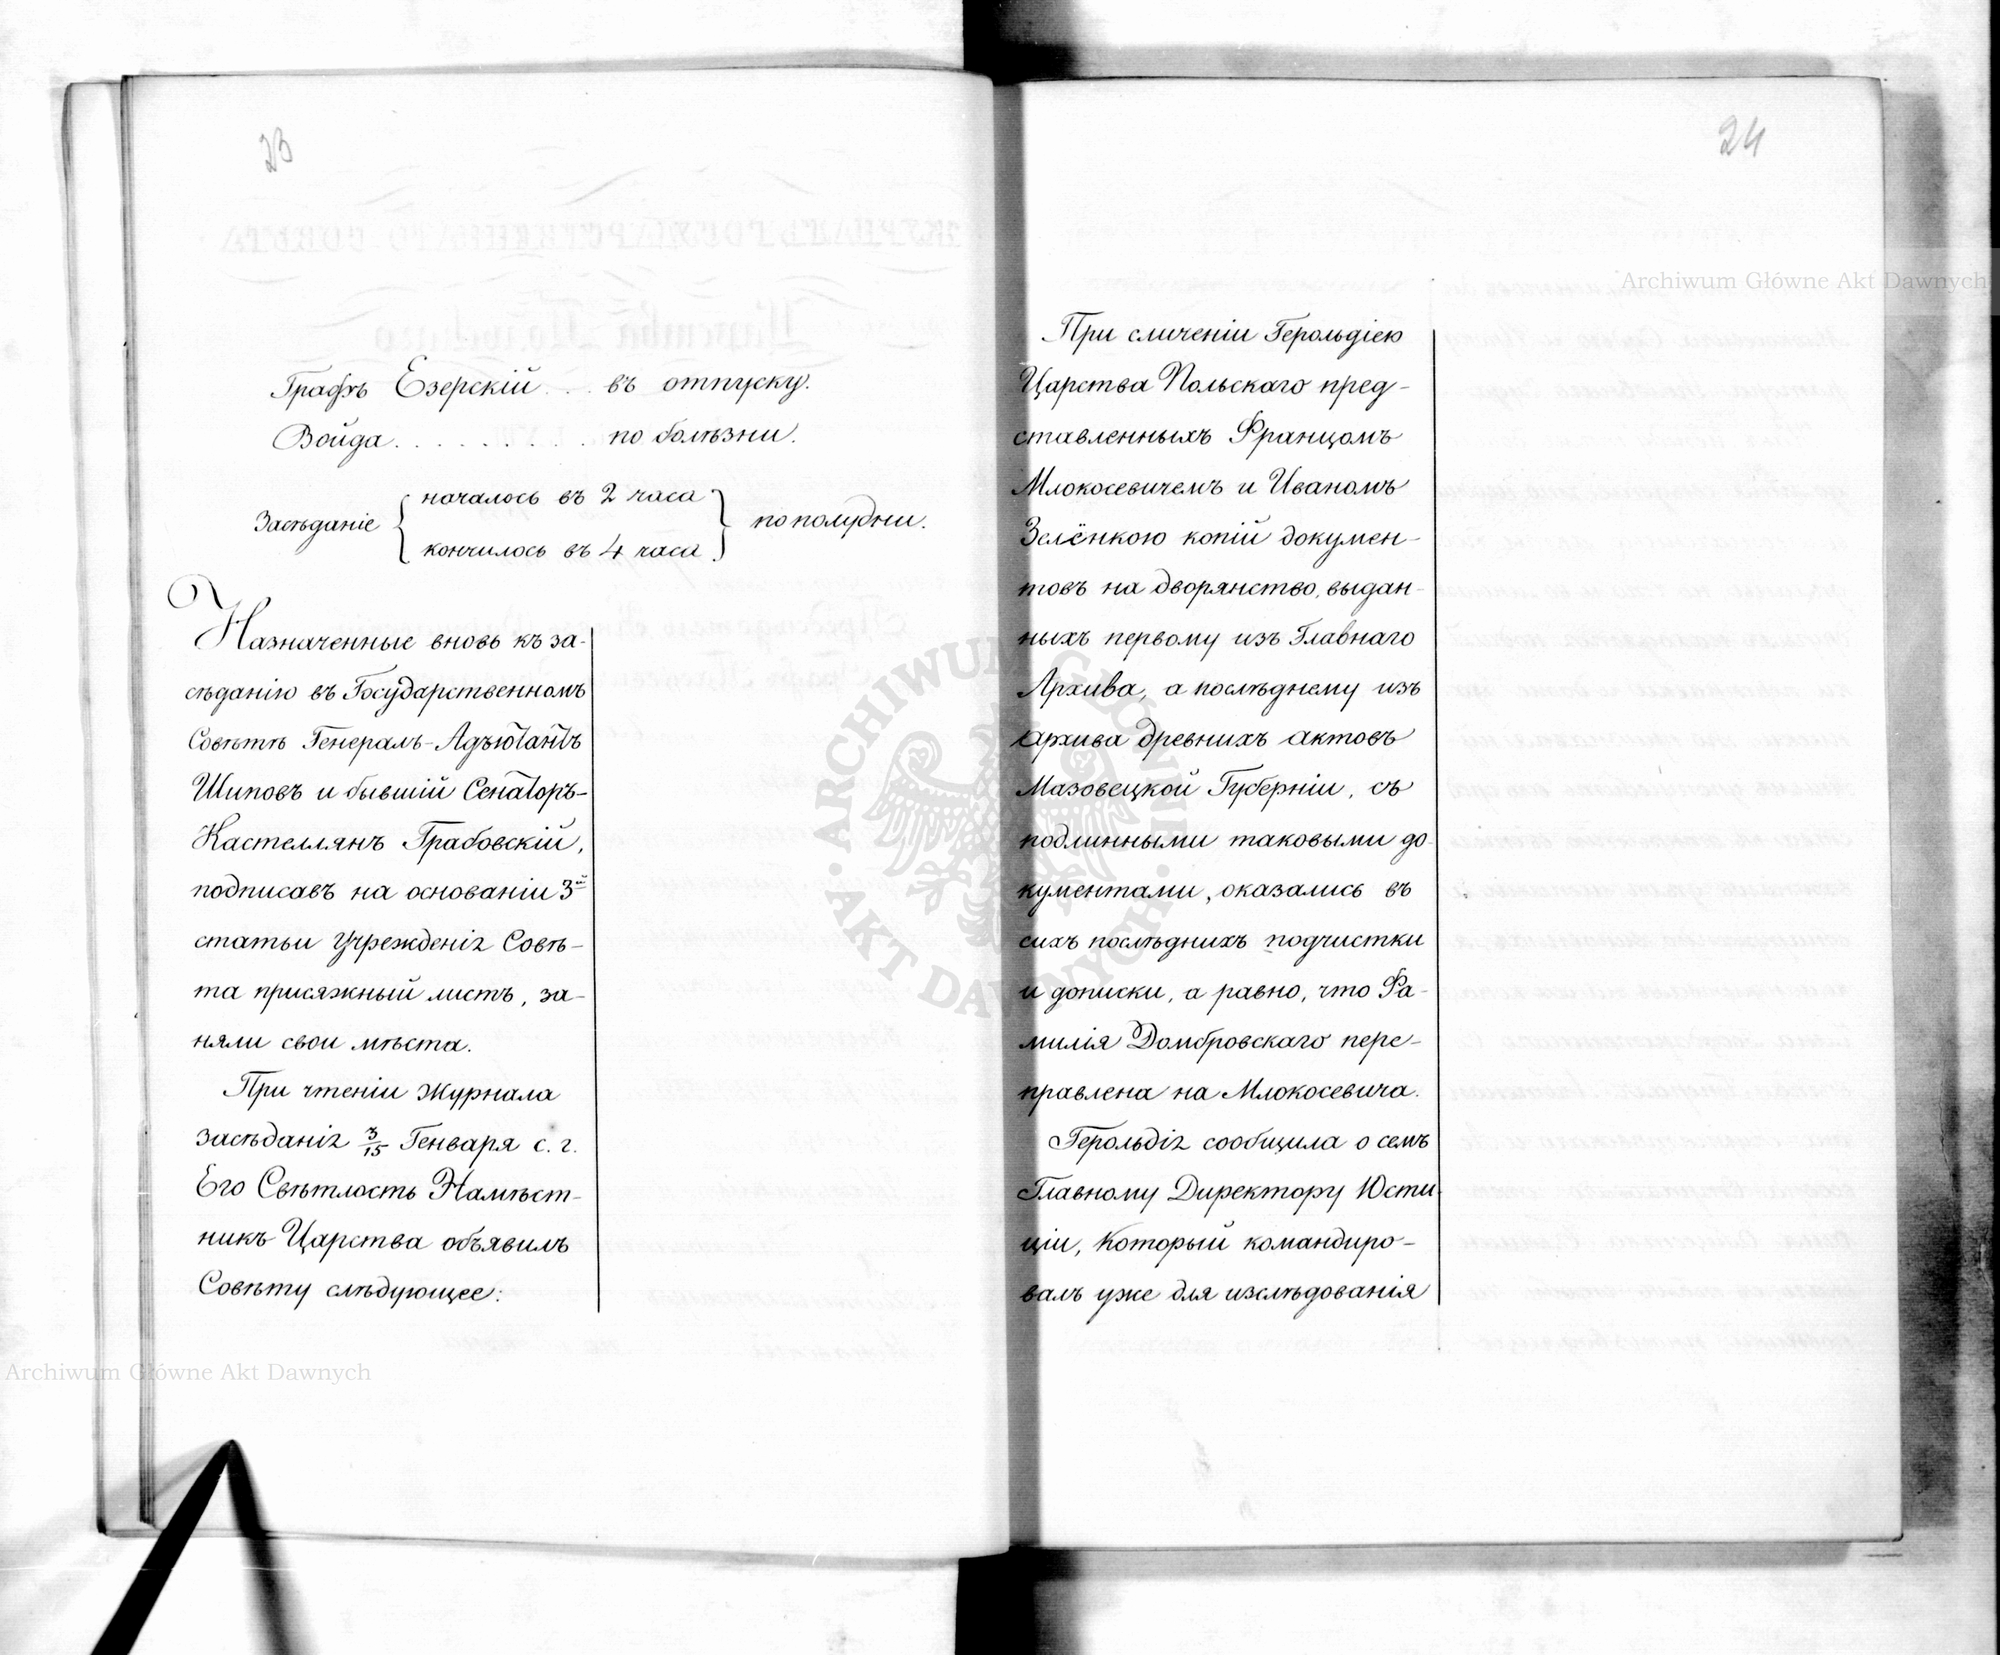 23
Графъ Езерскій . . . въ отпуску.
Войда . . . . . . . . . по болѣзни.
Засѣданіе { началось въ 2 часа
кончилось въ 4 часа } по полудни.
Назначенные вновь къ за-
сѣданію въ Государственномъ
Совѣтѣ Генералъ-Адъютантъ
Шиповъ и бывшій Сенаторъ-
Кастеллянъ Грабовскій,
подписавъ на основаніи 3ей
статьи Учрежденія Совѣ-
та присяжный листъ, за-
няли свои мѣста.
При чтеніи Журнала
засѣданія 3/15 Генваря с. г.
Его Свѣтлость Намѣст-
никъ Царства объявилъ
Совѣту слѣдующее:
24
При сличеніи Герольдіею
Царства Польскаго пред-
ставленныхъ Францомъ
Млокосевичемъ и Иваномъ
Зелёнкою копій докумен-
товъ на дворянство, выдан-
ныхъ первому изъ Главнаго
Архива, а послѣднему изъ
архива древнихъ актовъ
Мазовецкой Губерніи, съ
подлинными таковыми до-
кументами, оказались въ
сихъ послѣднихъ подчистки
и дописки, а равно, что Фа-
милія Домбровскаго пере-
правлена на Млокосевича.
Герольдія сообщила о семъ
Главному Директору Юсти-
ціи, который командиро-
валъ уже для изслѣдованія
Archiwum Główne Akt Dawnych
Archiwum Główne Akt Dawnych
ARCHIWUM GŁÓWNE AKT DAWNYCH